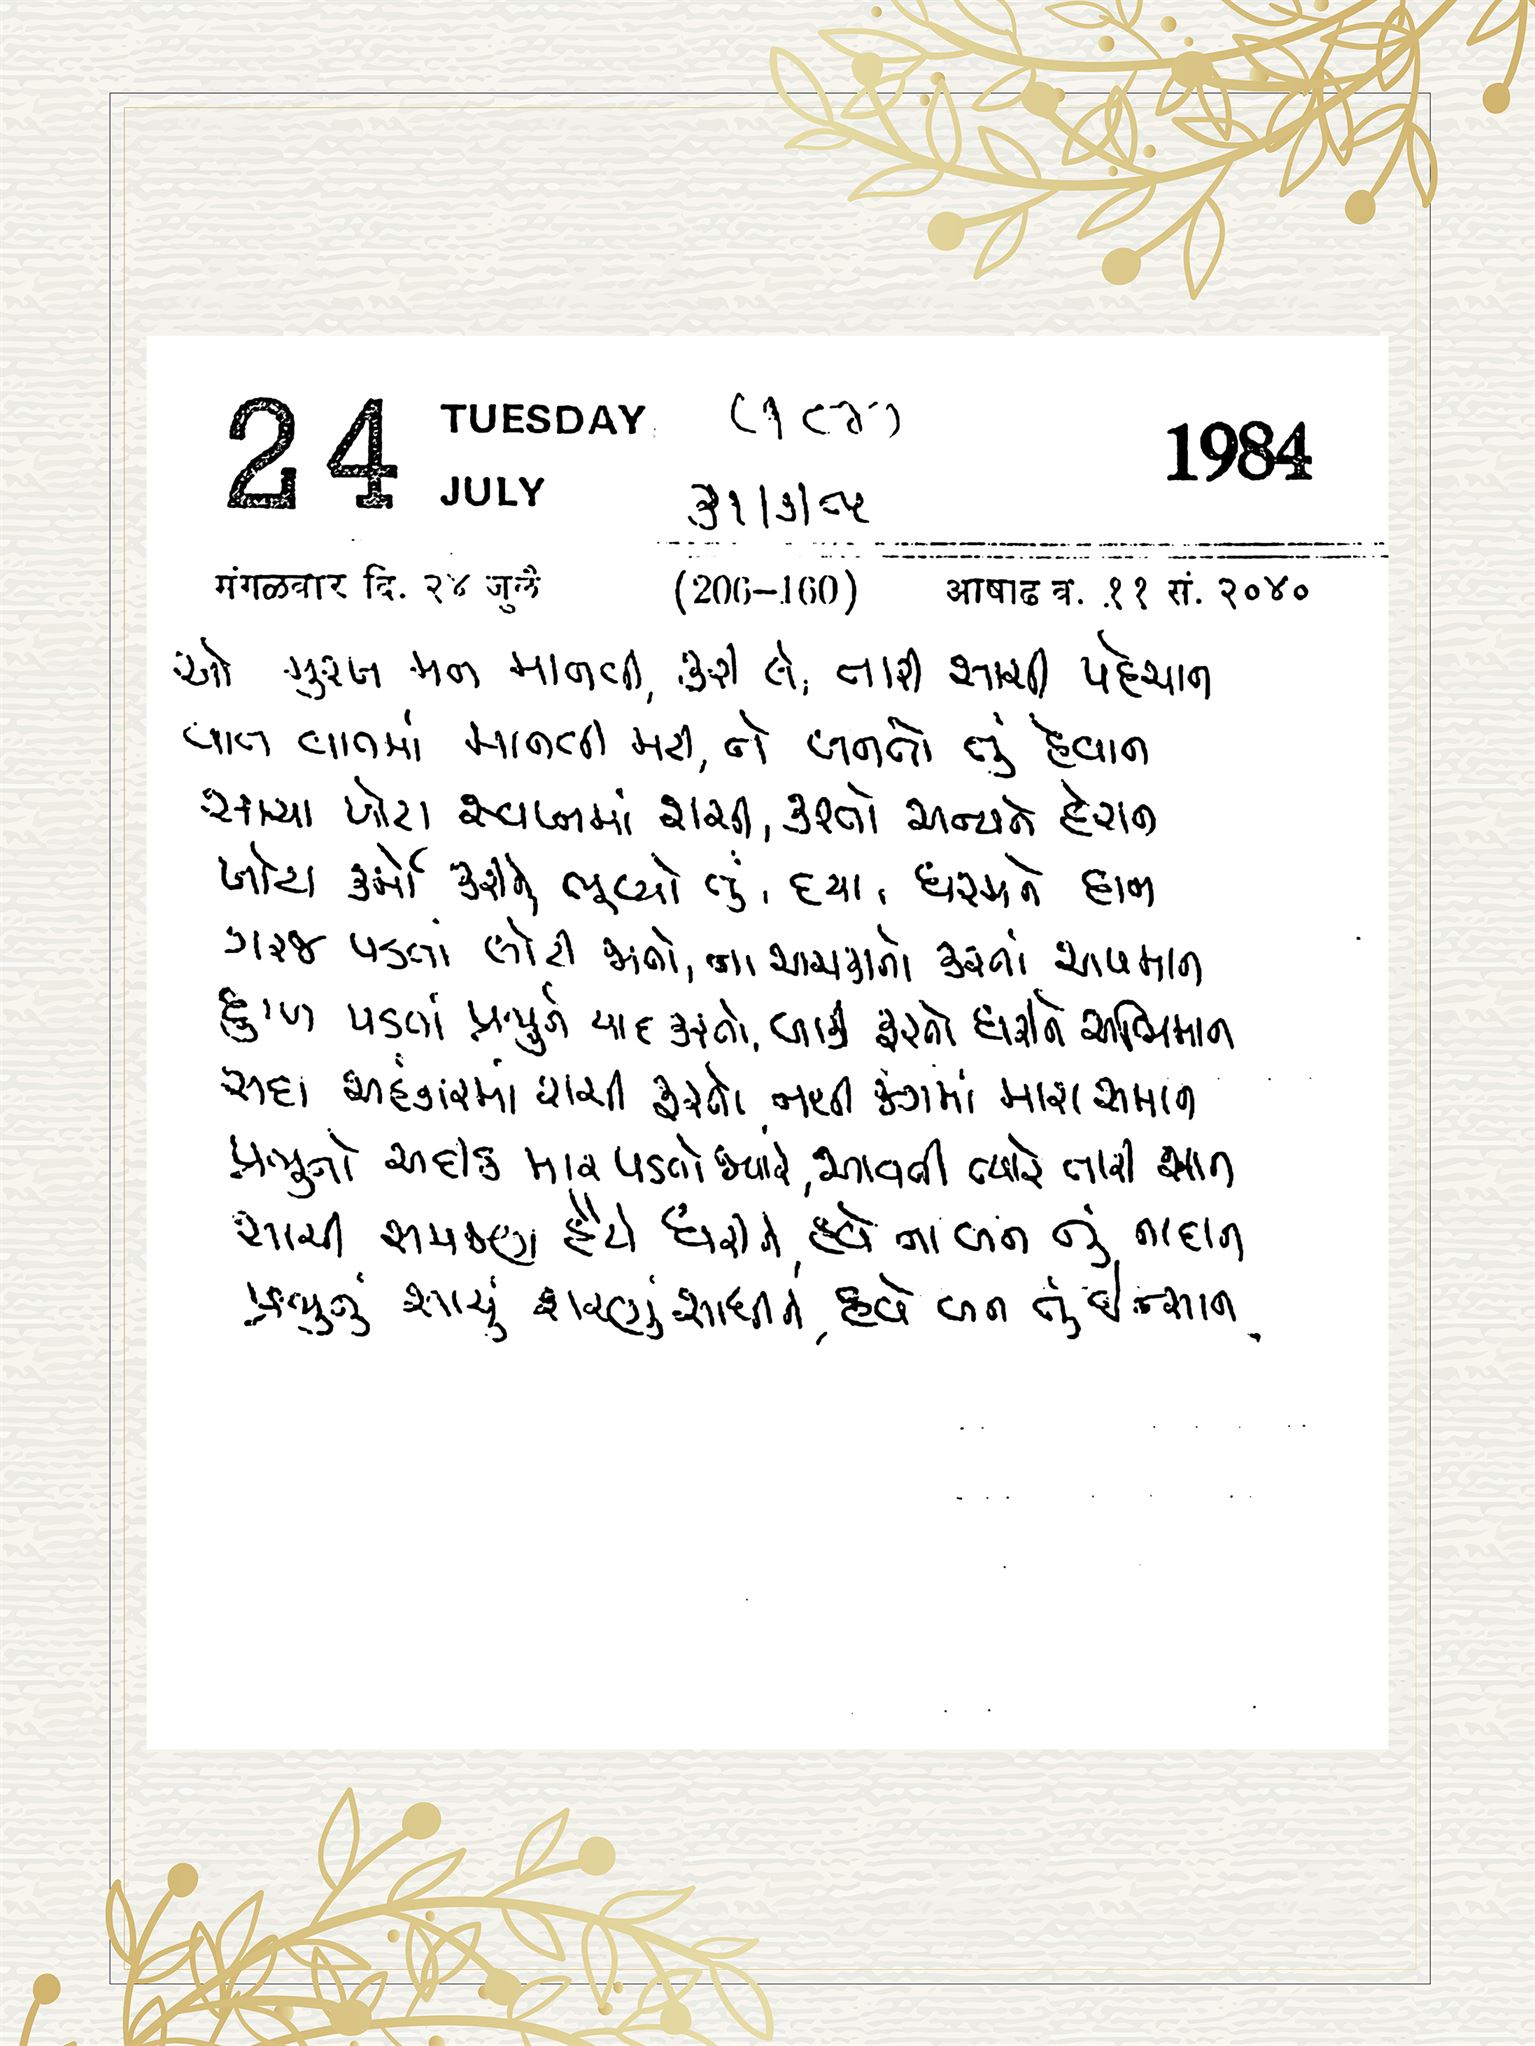 24 TUESDAY JULY 1984
मंगळवार दि. २४ जुलै (206-160) आषाढ व. ११ सं. २०४०
ઓ મુરખ મન માનવી, કરી લે, તારી સાચી પહેચાન
વાત વાતમાં માનવી મટી, ને બનતો તું હેવાન
સાચા ખોટા સ્વપ્નમાં રાચી, કરતો અન્યને હેરાન
ખોટા કર્મો કરીને ભૂલ્યો તું, દયા, ધરમને દાન
ગરજ પડતાં લોટી જાતો, ના અચકાતો કરતાં અપમાન
દુઃખ પડતાં પ્રભુને યાદ કરતો, બાકી ફરતો ધરીને અભિમાન
સદા અહંકારમાં રાચી ફરતો, નથી જગમાં મારા સમાન
પ્રભુનો અદીઠ માર પડતો જ્યારે, આવતી ત્યારે તારી સાન
સાચી સમજણ હૈયે ધરીને, હવે ના બન તું નાદાન
પ્રભુનું સાચું શરણું સાધીને, હવે બન તું ઈન્સાન.